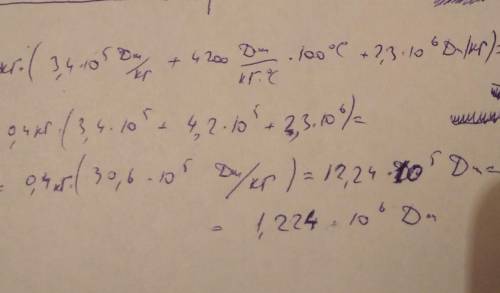 кг·(3,4·10⁵ Дж/кг + 4200 Дж/кг·°C · 100°C + 2,3·10⁶ Дж/кг)=
0,4кг·(3,4·10⁵ + 4,2·10⁵ + 2,3·10⁶)=
= 0,4кг·(30,6·10⁵ Дж/кг) = 12,24·10⁵ Дж=
= 1,224·10⁶ Дж